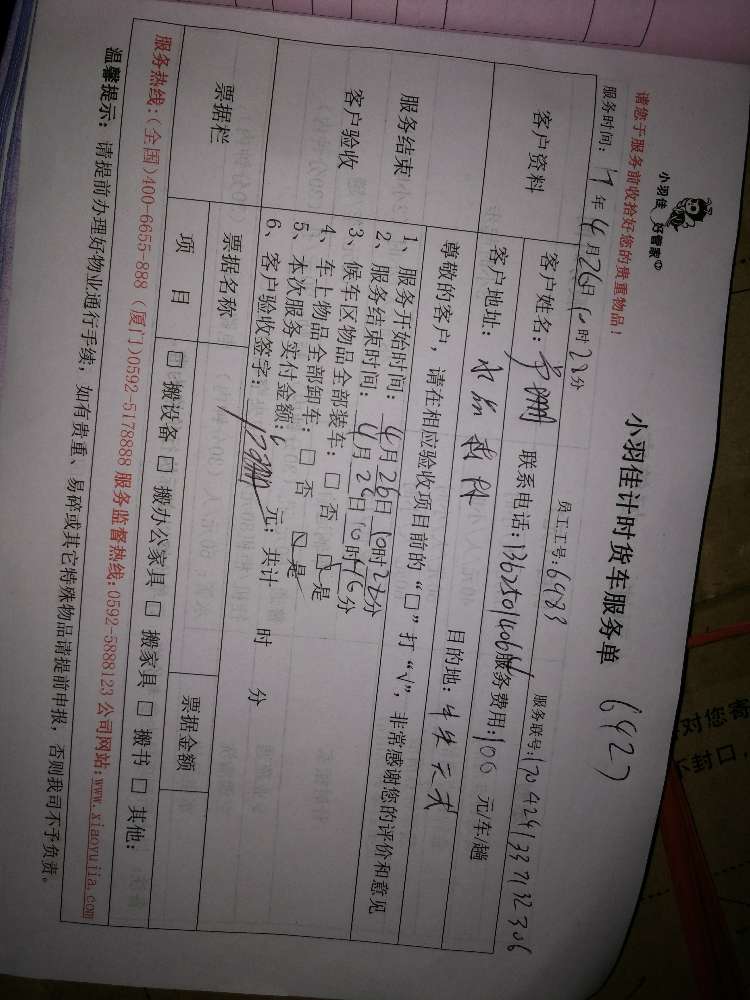 小羽佳 好管家
小羽佳计时货车服务单 6927
请您于服务前收拾好您的贵重物品！
员工工号：6983
服务联号：170424133713２306
服务时间：17年4月26日10时22分
客户资料
客户姓名： 联系电话：13625014064 服务费用：100 元/车/趟
客户地址： 目的地：
服务结束
客户验收
尊敬的客户，请在相应验收项目前的“□”打“√”，非常感谢您的评价和意见
1、服务开始时间：4月26日10时22分
2、服务结束时间：4月26日10时46分
3、候车区物品全部装车：□ 否 ☑ 是
4、车上物品全部卸车：□ 否 ☑ 是
5、本次服务实付金额： 元；共计 时 分
6、客户验收签字：
票据栏
票据名称
票据金额
项 目
□ 搬设备 □ 搬办公家具 □ 搬家具 □ 搬书 □ 其他：
服务热线：（全国）400-6655-888（厦门）0592-5178888 服务监督热线：0592-5888123 公司网站：www.xiaoyujia.com
温馨提示：请提前办理好物业通行手续，如有贵重、易碎或其它特殊物品请提前申报，否则我司不予负责。
对您寄
不封口